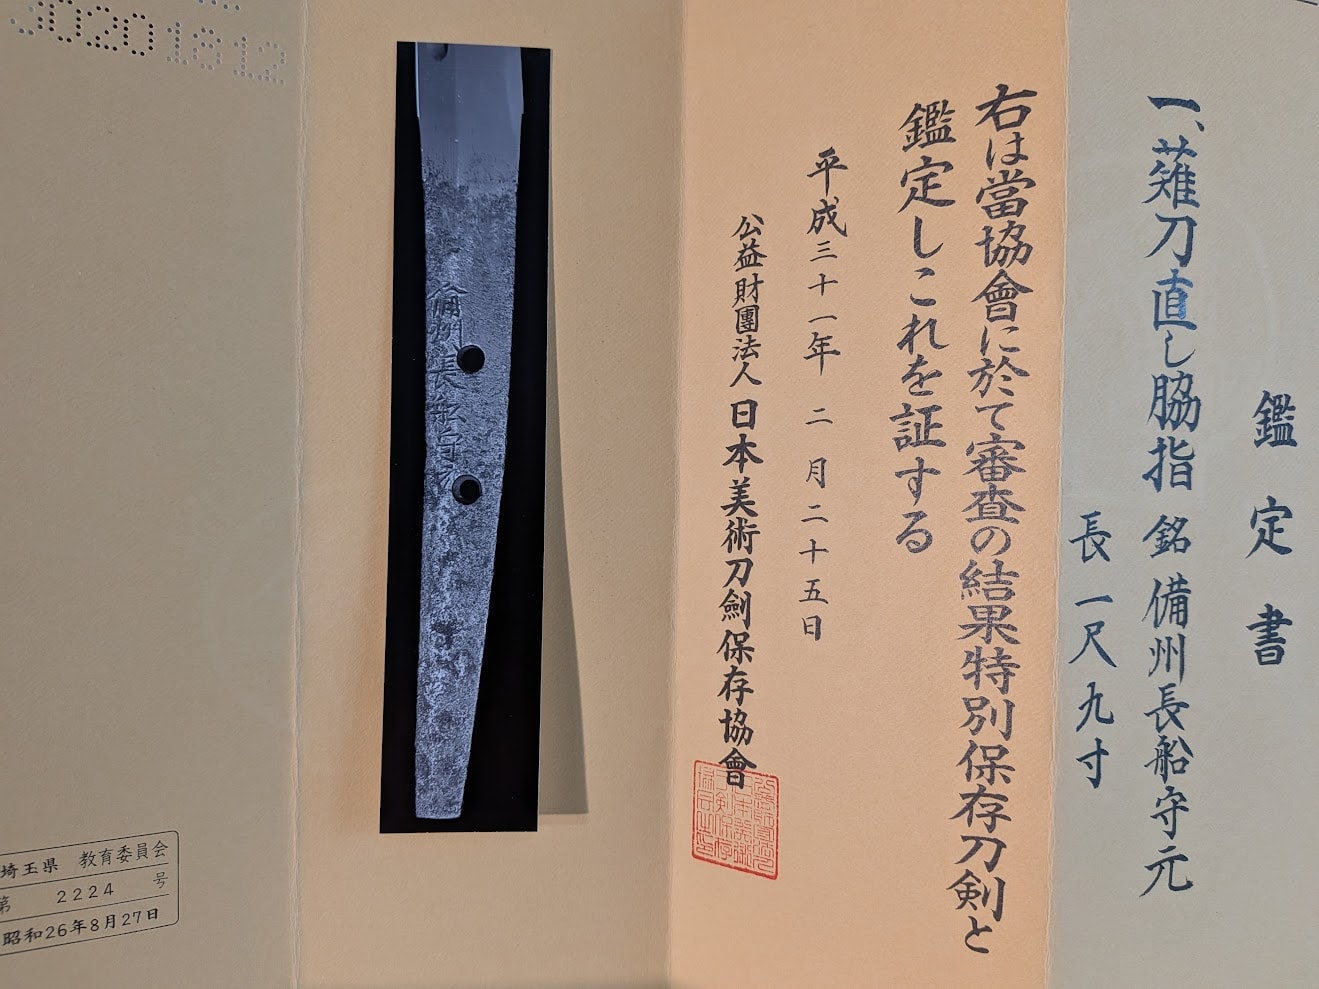 鑑定書
一、薙刀直し脇指 銘 備州長船守元
長 一尺九寸
右は當協會に於て審査の結果特別保存刀剣と
鑑定しこれを証する
平成三十一年 二月二十五日
公益財團法人 日本美術刀劍保存協會
備州長船守元
30201812
埼玉県 教育委員会
第 2224 号
昭和26年8月27日